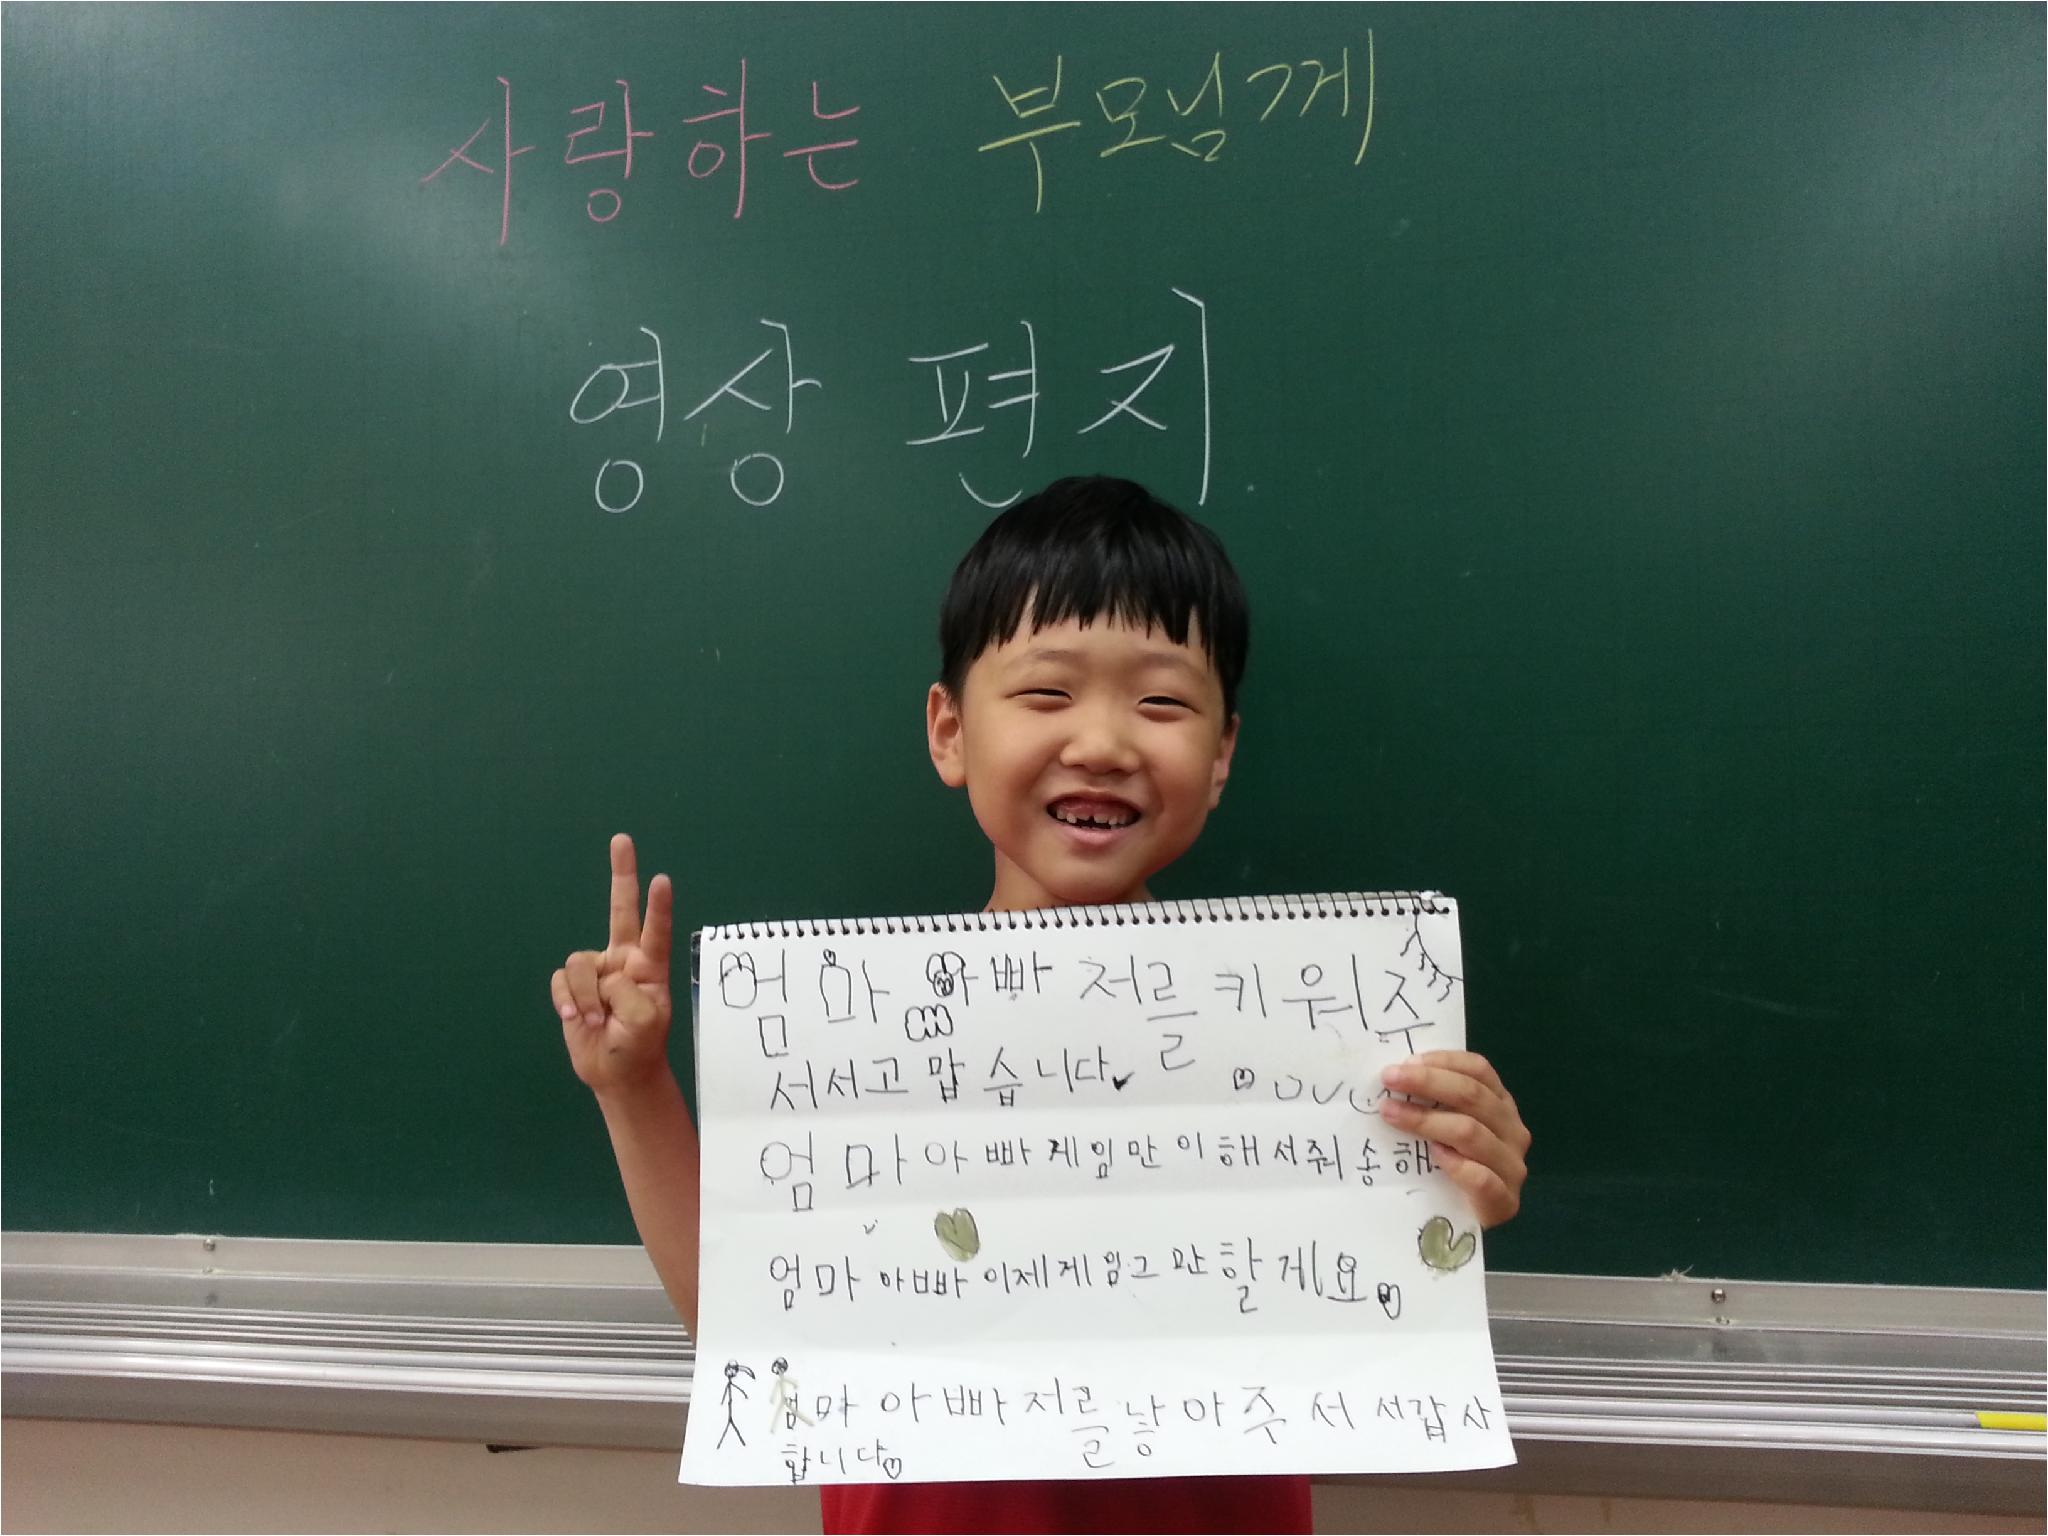 사랑하는 부모님께
영상 편지
엄마 아빠 저를 키워주
서서고맙습니다
엄마아빠게임만이해서줘송해
엄마아빠이제게임그만할게요
엄마아빠저를낳아주서서갑사
합니다